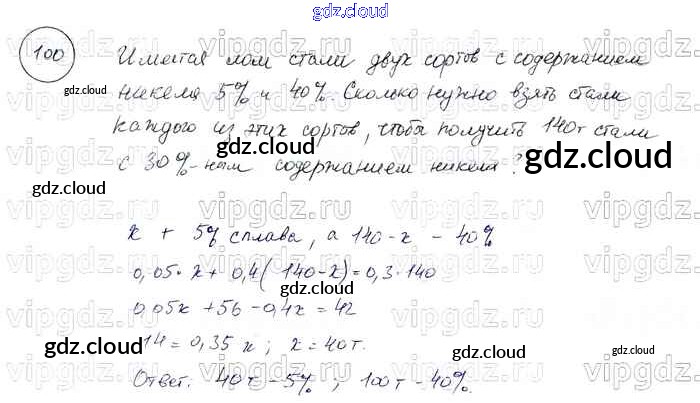 gdz.cloud
100 Имеется лом стали двух сортов с содержанием
никеля 5% и 40%. Сколько нужно взять стали
каждого из этих сортов, чтобы получить 140т стали
с 30%-ным содержанием никеля?
x т 5% сплава, а 140-x - 40%
0,05·x+0,4(140-x)=0,3·140
0,05x+56-0,4x=42
14=0,35x; x=40т.
Ответ: 40т-5%; 100т-40%.
gdz.cloud
gdz.cloud
gdz.cloud
gdz.cloud
gdz.cloud
gdz.cloud
gdz.cloud
vipgdz.ru